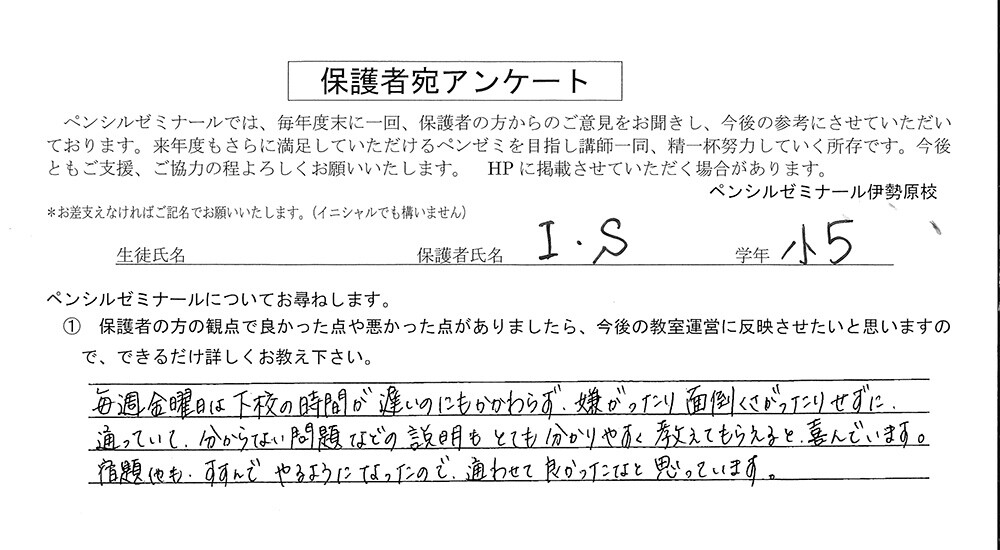 保護者宛アンケート
ペンシルゼミナールでは、毎年度末に一回、保護者の方からのご意見をお聞きし、今後の参考にさせていただい
ております。来年度もさらに満足していただけるペンゼミを目指し講師一同、精一杯努力していく所存です。今後
ともご支援、ご協力の程よろしくお願いいたします。 HPに掲載させていただく場合があります。
ペンシルゼミナール伊勢原校
*お差支えなければご記名でお願いいたします。(イニシャルでも構いません)
生徒氏名 保護者氏名 I.S 学年 小5
ペンシルゼミナールについてお尋ねします。
① 保護者の方の観点で良かった点や悪かった点がありましたら、今後の教室運営に反映させたいと思いますの
で、できるだけ詳しくお教え下さい。
毎週金曜日は下校の時間が遅いのにもかかわらず、嫌がったり面倒くさがったりせずに、
通っていて、分からない問題などの説明もとても分かりやすく教えてもらえると、喜んでいます。
宿題他も、すすんでやるようになったので、通わせて良かったなと思っています。